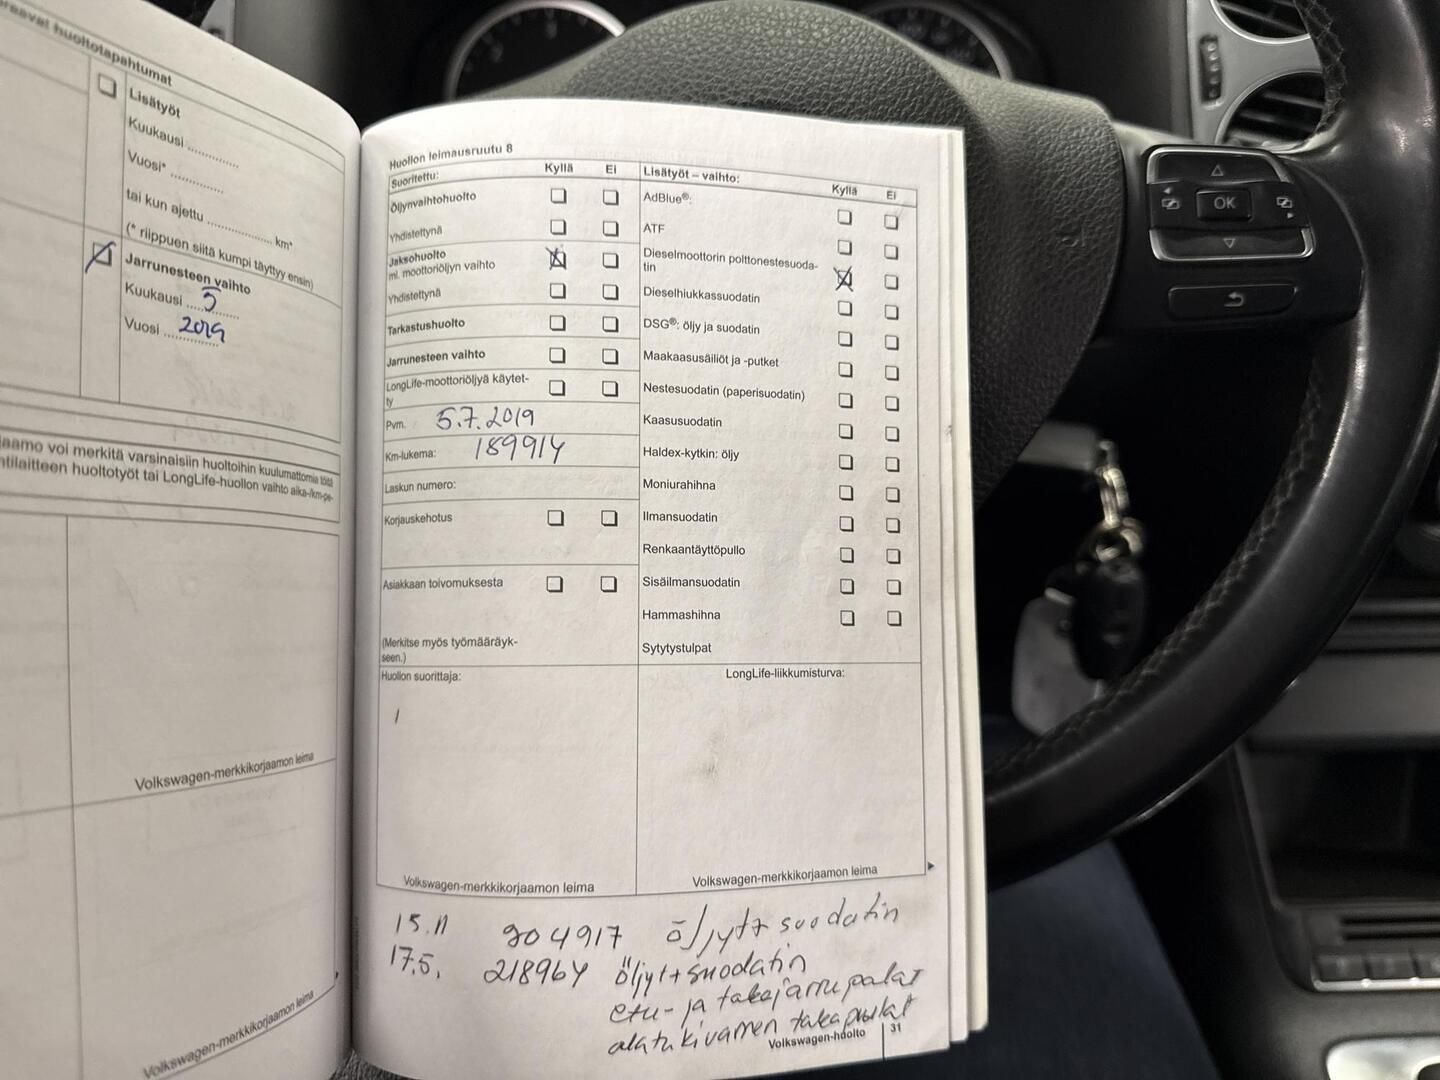 huoltotapahtumat
Lisätyöt
Kuukausi ...............
Vuosi* ...............
tai kun ajettu .................... km*
(* riippuen siitä kumpi täyttyy ensin)
Jarrunesteen vaihto
Kuukausi ..... 5
Vuosi ..... 2019
voi merkitä varsinaisiin huoltoihin kuulumattomia töitä
huoltotyöt tai LongLife-huollon vaihto aika-/km-pe-
Volkswagen-merkkikorjaamon leima
Volkswagen-merkkikorjaamon leima
Huollon leimausruutu 8
Suoritettu: Kyllä Ei
Öljynvaihtohuolto
Yhdistettynä
Jaksohuolto
ml. moottoriöljyn vaihto
Yhdistettynä
Tarkastushuolto
Jarrunesteen vaihto
LongLife-moottoriöljyä käytet-
ty
Pvm. 5.7.2019
Km-lukema: 189914
Laskun numero:
Korjauskehotus
Asiakkaan toivomuksesta
(Merkitse myös työmääräyk-
seen.)
Huollon suorittaja:
Volkswagen-merkkikorjaamon leima
Lisätyöt – vaihto: Kyllä Ei
AdBlue®:
ATF
Dieselmoottorin polttonestesuoda-
tin
Dieselhiukkassuodatin
DSG®: öljy ja suodatin
Maakaasusäiliöt ja -putket
Nestesuodatin (paperisuodatin)
Kaasusuodatin
Haldex-kytkin: öljy
Moniurahihna
Ilmansuodatin
Renkaantäyttöpullo
Sisäilmansuodatin
Hammashihna
Sytytystulpat
LongLife-liikkumisturva:
Volkswagen-merkkikorjaamon leima
15.11 204917 öljyt+suodatin
17.5. 218964 öljyt+suodatin
etu- ja takajarrupalat
alatukivarren takapuslat
Volkswagen-huolto 31
OK